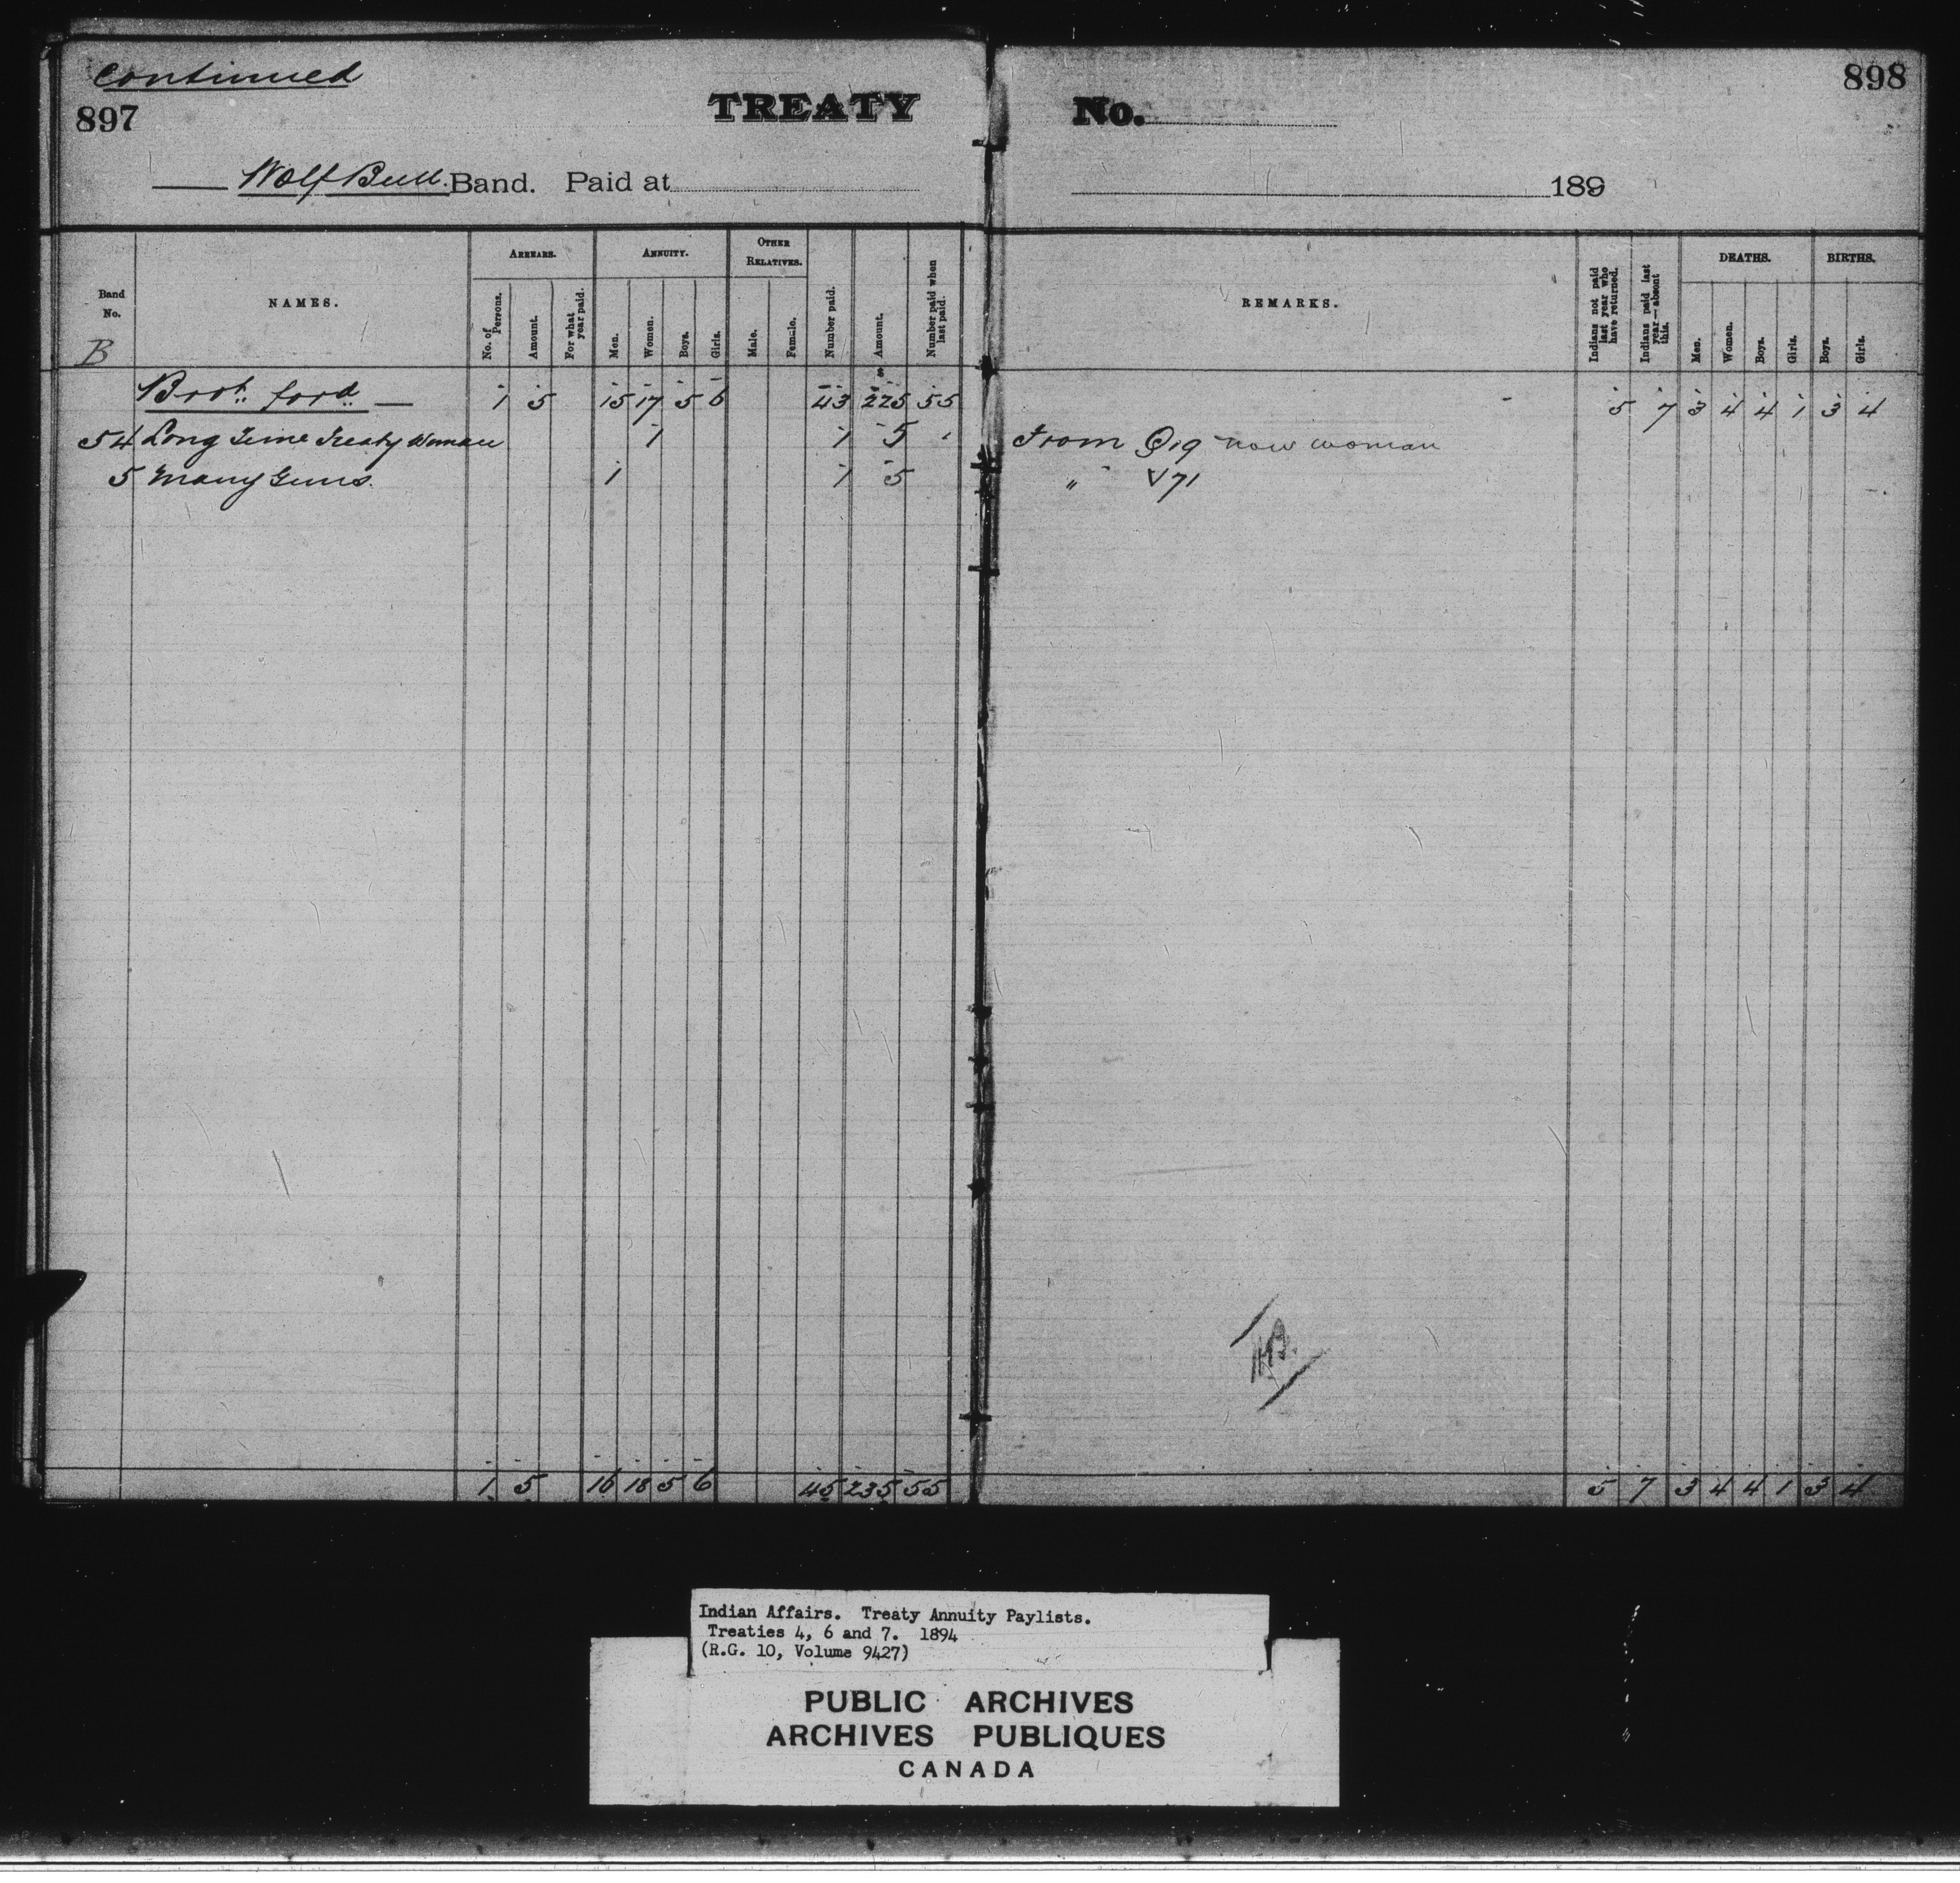 Continued
897
TREATY No. 898
Wolf Bull. Band. Paid at 189
Band No. B
NAMES.
ARREARS.
No. of Persons.
Amount.
For what year paid.
ANNUITY.
Men.
Women.
Boys.
Girls.
OTHER RELATIVES.
Male.
Female.
Number paid.
Amount.
Number paid when last paid.
REMARKS.
Indians not paid last year who have returned.
Indians paid last year—absent this.
DEATHS.
Men.
Women.
Boys.
Girls.
BIRTHS.
Boys.
Girls.
Brot. ford. — 1 5 15 17 5 6 43 225 55 5 7 3 4 4 1 3 4
54 Long Time Treaty Woman 1 1 5 From Q19 now woman
5 Many Guns. 1 1 5 " V71
HB.
1 5 16 18 5 6 45 235 55 5 7 3 4 4 1 3 4
Indian Affairs. Treaty Annuity Paylists.
Treaties 4, 6 and 7. 1894
(R.G. 10, Volume 9427)
PUBLIC ARCHIVES
ARCHIVES PUBLIQUES
CANADA